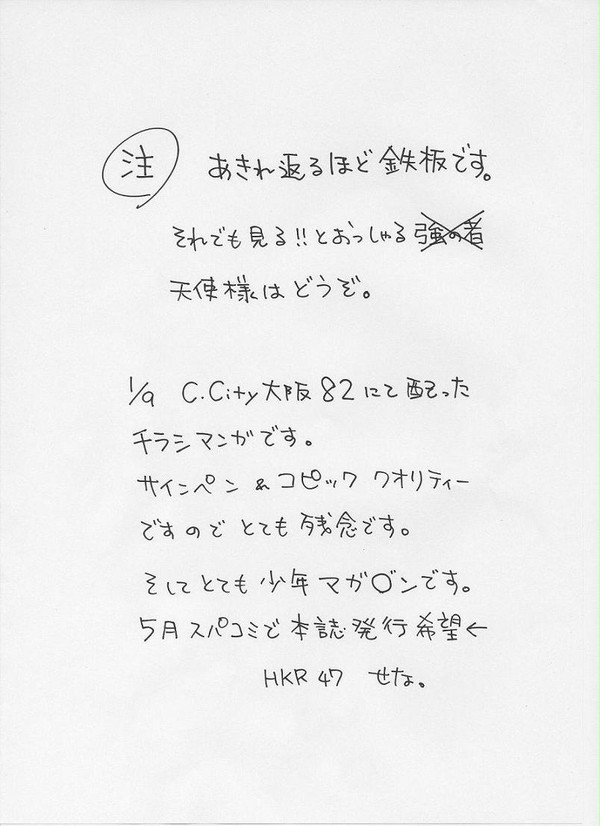 注 あきれ返るほど鉄板です。
それでも見る!!とおっしゃる強の者
天使様はどうぞ。
1/9 C.City大阪82にて配った
チラシマンガです。
サインペン&コピック クオリティー
ですので とても残念です。
そしてとても少年マガ○ンです。
5月スパコミで本誌発行希望←
HKR47 せな。